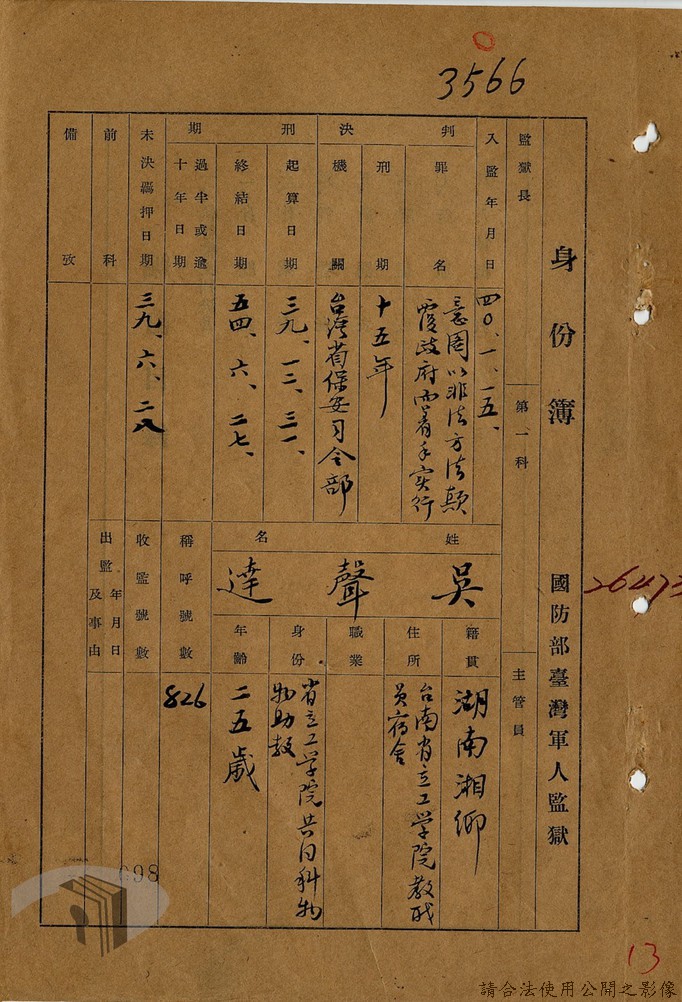 3566
身份簿
國防部臺灣軍人監獄
26473
監獄長
第一科
主管員
入監年月日
四〇、一、一五、
判決
罪名
意圖以非法方法顛
覆政府而着手实行
刑期
十五年
機關
台灣省保安司令部
刑期
起算日期
三九、一二、三一、
終結日期
五四、六、二七、
過半或逾
十年日期
未決羈押日期
三九、六、二八
前科
備攷
姓名
吳聲達
籍貫
湖南湘鄉
住所
台南省立工学院教职
員宿舍
職業
身份
省立工学院共同科物
物助教
年齡
二五歲
稱呼號數
826
收監號數
出監年月日
及事由
098
13
請合法使用公開之影像